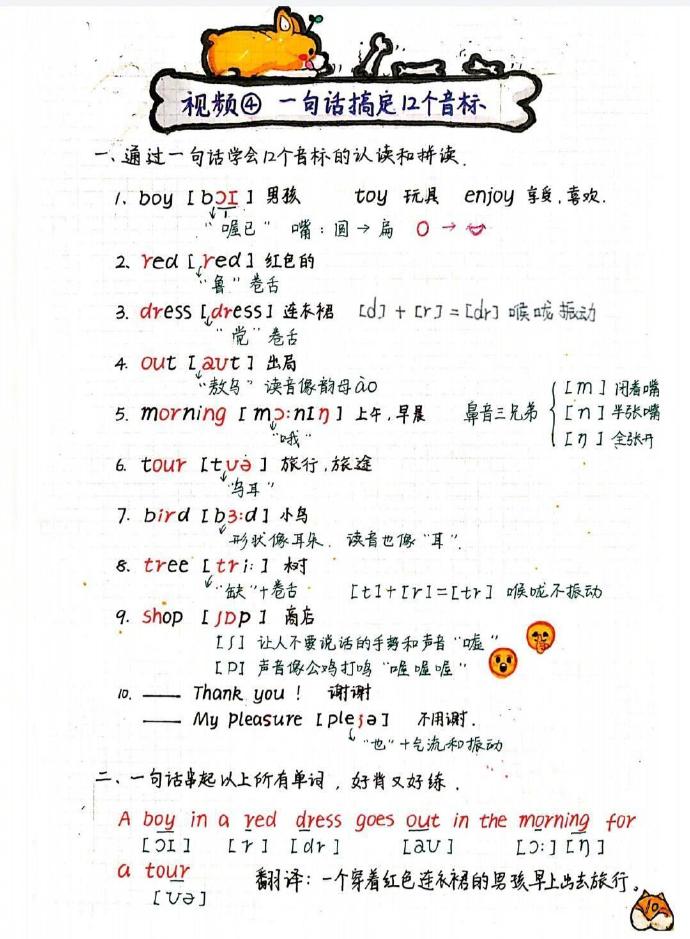 视频④ 一句话搞定12个音标
一、通过一句话学会12个音标的认读和拼读.
1. boy [bɔɪ] 男孩 toy 玩具 enjoy 享受,喜欢.
"喔已" 嘴:圆→扁 O →
2. red [red] 红色的
"鲁" 卷舌
3. dress [dress] 连衣裙 [d]+[r]=[dr] 喉咙振动
"觉" 卷舌
4. out [aʊt] 出局
"敖乌" 读音像韵母ào
5. morning [mɔ:nɪŋ] 上午,早晨 鼻音三兄弟 { [m] 闭着嘴
[n] 半张嘴
[ŋ] 全张开
"哦"
6. tour [tʊə] 旅行,旅途
"乌耳"
7. bird [bɜ:d] 小鸟
形状像耳朵. 读音也像"耳".
8. tree [tri:] 树
"缺"+卷舌 [t]+[r]=[tr] 喉咙不振动
9. shop [ʃɒp] 商店
[ʃ] 让人不要说话的手势和声音"嘘"
[ɒ] 声音像公鸡打鸣 "喔喔喔"
10. —— Thank you! 谢谢
—— My pleasure [pleʒə] 不用谢.
"也"+气流和振动
二、一句话串起以上所有单词,好背又好练.
A boy in a red dress goes out in the morning for
[ɔɪ] [r] [dr] [aʊ] [ɔ:] [ŋ]
a tour 翻译:一个穿着红色连衣裙的男孩早上出去旅行。
[ʊə]
10